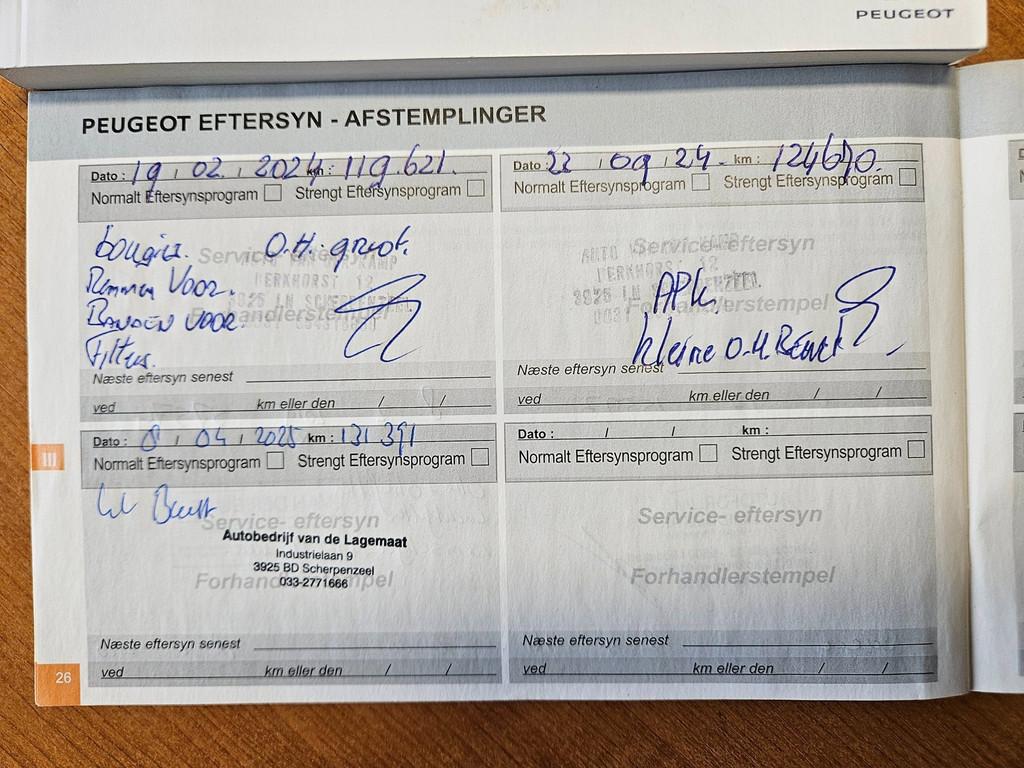 PEUGEOT
PEUGEOT EFTERSYN - AFSTEMPLINGER
Dato : 19 , 02 , 2024 km : 119.621.
Normalt Eftersynsprogram Strengt Eftersynsprogram
bougies. O.H. groot.
Service- eftersyn
Remmen VOOR.
BERKHORST 12
BANDEN VOOR.
3925 LN SCHERPENZEEL
Forhandlerstempel
Filters.
Næste eftersyn senest
ved km eller den / /
Dato : 22 , 09 , 24 - km : 124670.
Normalt Eftersynsprogram Strengt Eftersynsprogram
AUTO KAMP
Service- eftersyn
BERKHORST 12
3925 LN SCHERPENZEEL
APK.
Forhandlerstempel
kleine O.H Beurt
Næste eftersyn senest
ved km eller den / /
III
Dato : 8 , 04 , 2025 km : 131 391
Normalt Eftersynsprogram Strengt Eftersynsprogram
Beurt
Service- eftersyn
Autobedrijf van de Lagemaat
Industrielaan 9
3925 BD Scherpenzeel
Forhandlerstempel
033-2771666
Næste eftersyn senest
ved km eller den / /
Dato : / / km :
Normalt Eftersynsprogram Strengt Eftersynsprogram
Service- eftersyn
Forhandlerstempel
Næste eftersyn senest
ved km eller den / /
26